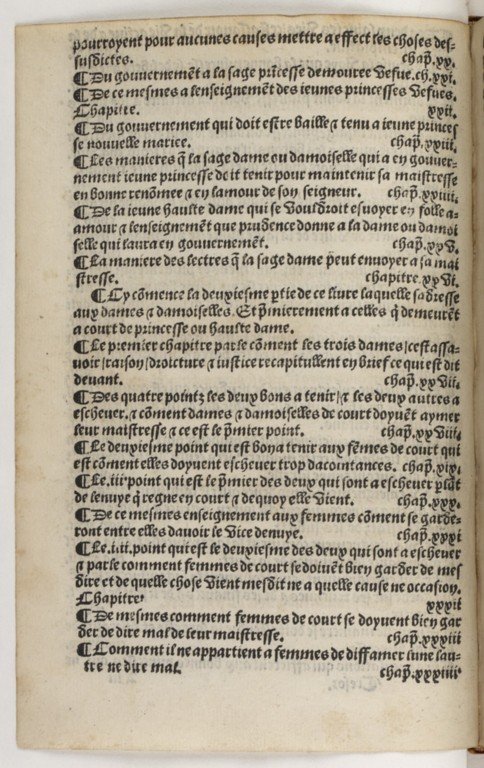 pourroyent pour aucunes causes mettre a effect les choses des-
susdictes. chap̃.xx.
¶Du gouuernemẽt a la sage prĩcesse demouree vefue.ch.xxi.
¶De ce mesmes a lenseignemẽt des ieunes princesses vefues.
Chapitre. xxii.
¶Du gouuernement qui doit estre baille ⁊ tenu a ieune princes
se nouuelle mariee. chap̃.xxiii.
¶Les manieres q̃ la sage dame ou damoiselle qui a en gouuer-
nement ieune princesse doit tenir pour maintenir sa maistresse
en bonne renõmee ⁊ en lamour de son seigneur. chap̃.xxiiii.
¶De la ieune haulte dame qui se vouldroit esuoyer en folle a-
amour ⁊ lenseignement que prudence donne a la dame ou damoi
selle qui laura en gouuernemẽt. chap̃.xxv.
¶La maniere des lectres q̃ la sage dame peut enuoyer a sa mai
stresse. chapitre.xxvi.
¶Cy cõmence la deuxiesme p̃tie de ce liure laquelle sadresse
aux dames ⁊ damoiselles. Et p̃mierement a celles q̃ demeurẽt
a court de princesse ou haulte dame.
¶Le premier chapitre parle cõment les trois dames/cest assa-
uoir/raison/droicture ⁊ iustice recapitullent en brief ce qui est dit
deuant. chap̃.xxvii.
¶Des quatre pointz les deux bons a tenir/⁊ les deux autres a
escheuer. ⁊ cõment dames ⁊ damoiselles de court doyuẽt aymer
leur maistresse ⁊ ce est le p̃mier point. chap̃.xxviii.
¶Le deuxiesme point qui est bon a tenir aux fẽmes de court qui
est cõment elles doyuent escheuer trop dacointances. chap̃.xxix.
¶Le.iii.point qui est le p̃mier des deux qui sont a escheuer plãt
de lenuye q̃ regne en court ⁊ de quoy elle vient. chap̃.xxx.
¶De ce mesmes enseignement aux femmes cõment se garde-
ront entre elles dauoir le vice denuye. chap̃.xxxi
¶Le.iiii.point qui est le deuxiesme des deux qui sont a escheuer
⁊ parle comment femmes de court se doiuẽt bien garder de mes
dire et de quelle chose vient mesdit ne a quelle cause ne occasion.
Chapitre. xxxii
¶De mesmes comment femmes de court se doyuent bien gar
der de dire mal de leur maistresse. chap̃.xxxiii
¶Comment il ne appartient a femmes de diffamer lune lau-
tre ne dire mal. chap̃.xxxiiii